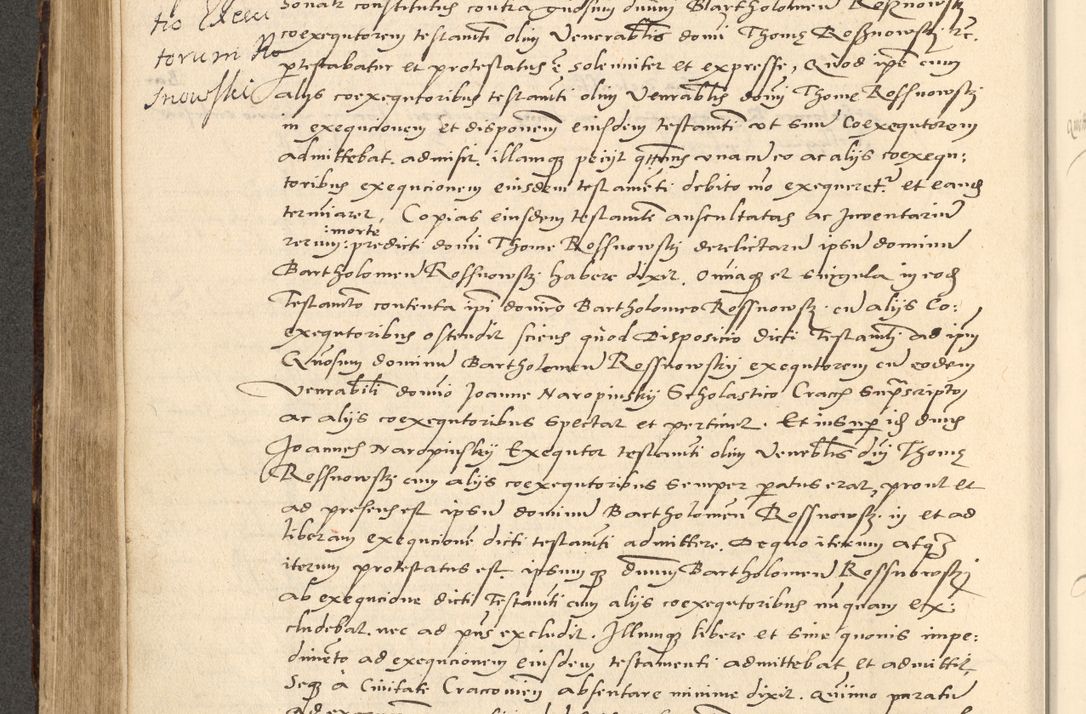 tio Execu
torum Ro
snowski
coexequtorem testamti olim Venerablis domi Thomę Rossnowskj etc.
protestabatur et protestatus ẽ solemniter et expresse, Quod ipẽ cum
alys coexequtoribus testamti olim Venerablis domj Thomę Rossnowskj
in exequcionem et disponem eiusdem testamti vt suũ Coexequtorem
admittebat, admisit, illamqʒ petijt qttenus vna cũ eo ac alijs coexequ:
toribus exequcionem eiusdem testamẽti debito mo exequeretr et eand
terminaret, Copias eiusdem testamte auscultatas ac Inventariũ
rerum :morte: predicti domi Thome Rossnowskj derelictarũ ipsũ dominũ
Bartholomeũ Rossnowskj habere dixit. Omniaqʒ et singula in eodẽ
Testamto contenta ipi domino Bartholomeo Rossnowskj cũ alijs Co:
exequtoribus ostendit sciens quod Disposicio dicti Testamti ad ipm
Quosum dominũ Bartholomeũ Rossnowskij exequtorem cũ eodem
Venerabili domino Joanne Naropinskij Scholastico Cracõ suprascripto
ac alijs coexequtoribus spectat et pertinet. Et insuper idẽ dnus
Joannes Naropinsky Exequtor testamti olim Venerblis dnj Thomę
Rossnowskj cum alijs coexequtoribus semper paratus erat, prout et
ad presens est ipsũ dominũ Bartholomeũ Rossnowskj in et ad
liberam exequcionẽ dicti testamti admittere. De quo iterum atqʒ
iterum protestatus est, ipsumqʒ dnum Bartholomeũ Rossnowskj
ab exequcione dicti Testamti cum alijs coexequtoribus nũquam etx:
cludebat, nec ad pñs excludit. Illumqʒ libere et sine quouis impe:
dimẽto ad exequcionem eiusdem testamenti admittebat et admittit,
Seqʒ à Ciuitate Cracouien absentare minime dixit. Quinno paratũ